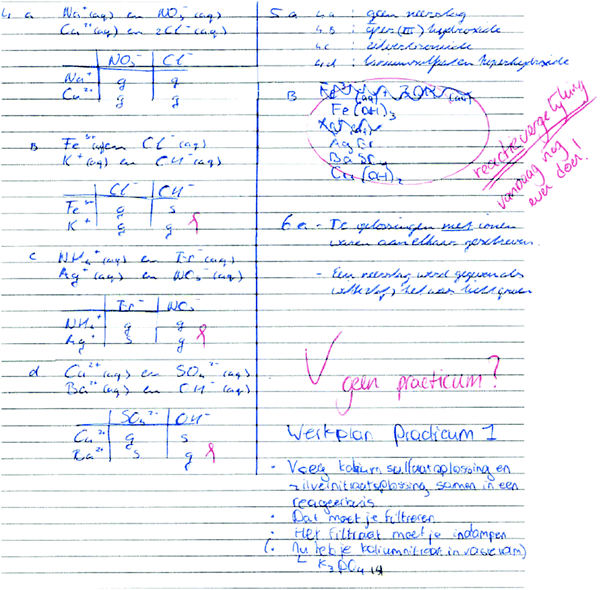 4 a Na⁺(aq) en NO₃⁻(aq)
Cu²⁺(aq) en 2Cl⁻(aq)
NO₃⁻ Cl⁻
Na⁺ g g
Cu²⁺ g g
B Fe³⁺ en Cl⁻(aq)
K⁺(aq) en OH⁻(aq)
Cl⁻ OH⁻
Fe³⁺ g s
K⁺ g g
c NH₄⁺(aq) en Br⁻(aq)
Ag⁺(aq) en NO₃⁻(aq)
Br⁻ NO₃⁻
NH₄⁺ g g
Ag⁺ s g
d Cu²⁺(aq) en SO₄²⁻(aq)
Ba²⁺(aq) en OH⁻(aq)
SO₄²⁻ OH⁻
Cu²⁺ g s
Ba²⁺ s g
5 a 4a : geen neerslag
4B : ijzer(III)hydroxide
4c : zilverbromide
4d : bariumsulfaat en koperhydroxide
B
Fe(OH)₃
AgBr
BaSO₄
Cu(OH)₂
reactievergelijking
vandaag nog
even doen!
6 a - De oplossingen met ionen
waren aan elkaar geschreven.
- Een neerslag werd gegeven als
, het was lichtgroen
V geen practicum?
Werkplan Practicum 1
• Voeg kaliumsulfaatoplossing en
zilvernitraatoplossing samen in een
reageerbuis
• Dat moet je filtreren
• Het filtraat moet je indampen
(• Nu heb je kaliumnitraat in vaste vorm)
K₃PO₄